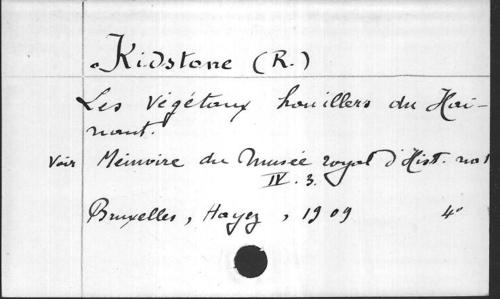 Kidstone (R.)
Les végétaux houillers du Hai-
naut.
Voir Mémoire du Musée royal d'Hist. nat
IV. 3.
Bruxelles, Hayez, 1909 4°